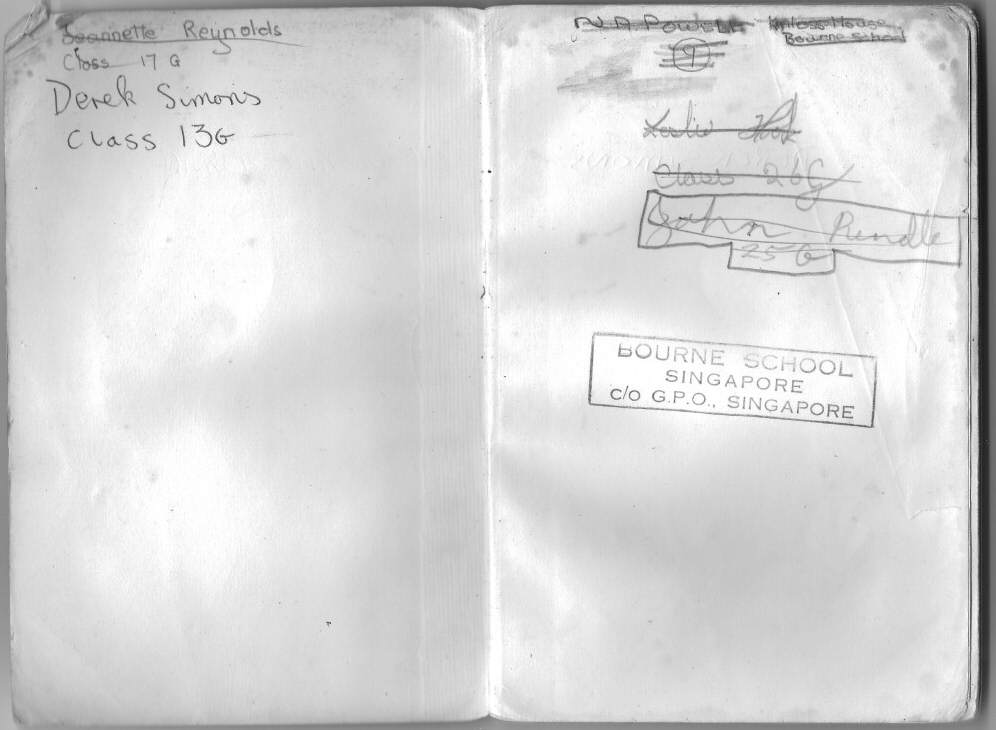 Jeannette Reynolds
Class 17 G
Derek Simons
Class 13G
N.A. Powell
Kinloss House
Bourne School
9
Leslie
Class 26G
John Rendle
25 G
BOURNE SCHOOL
SINGAPORE
c/o G.P.O., SINGAPORE